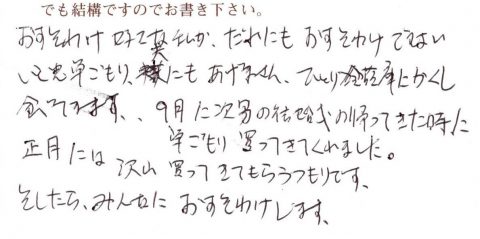 でも結構ですのでお書き下さい。
おすそわけ好きな私が、だれにもおすそわけできない
いも半ごもり、にもあげません、ひとり金庫にかくし
食べてます、、9月に次男の結婚式の帰ってきた時に
半ごもり買ってきてくれました。
正月には沢山買ってきてもらうつもりです、
そしたら、みんなにおすそわけします、